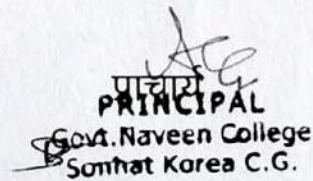 प्राचार्य
PRINCIPAL
Govt. Naveen College
Sonhat Korea C.G.